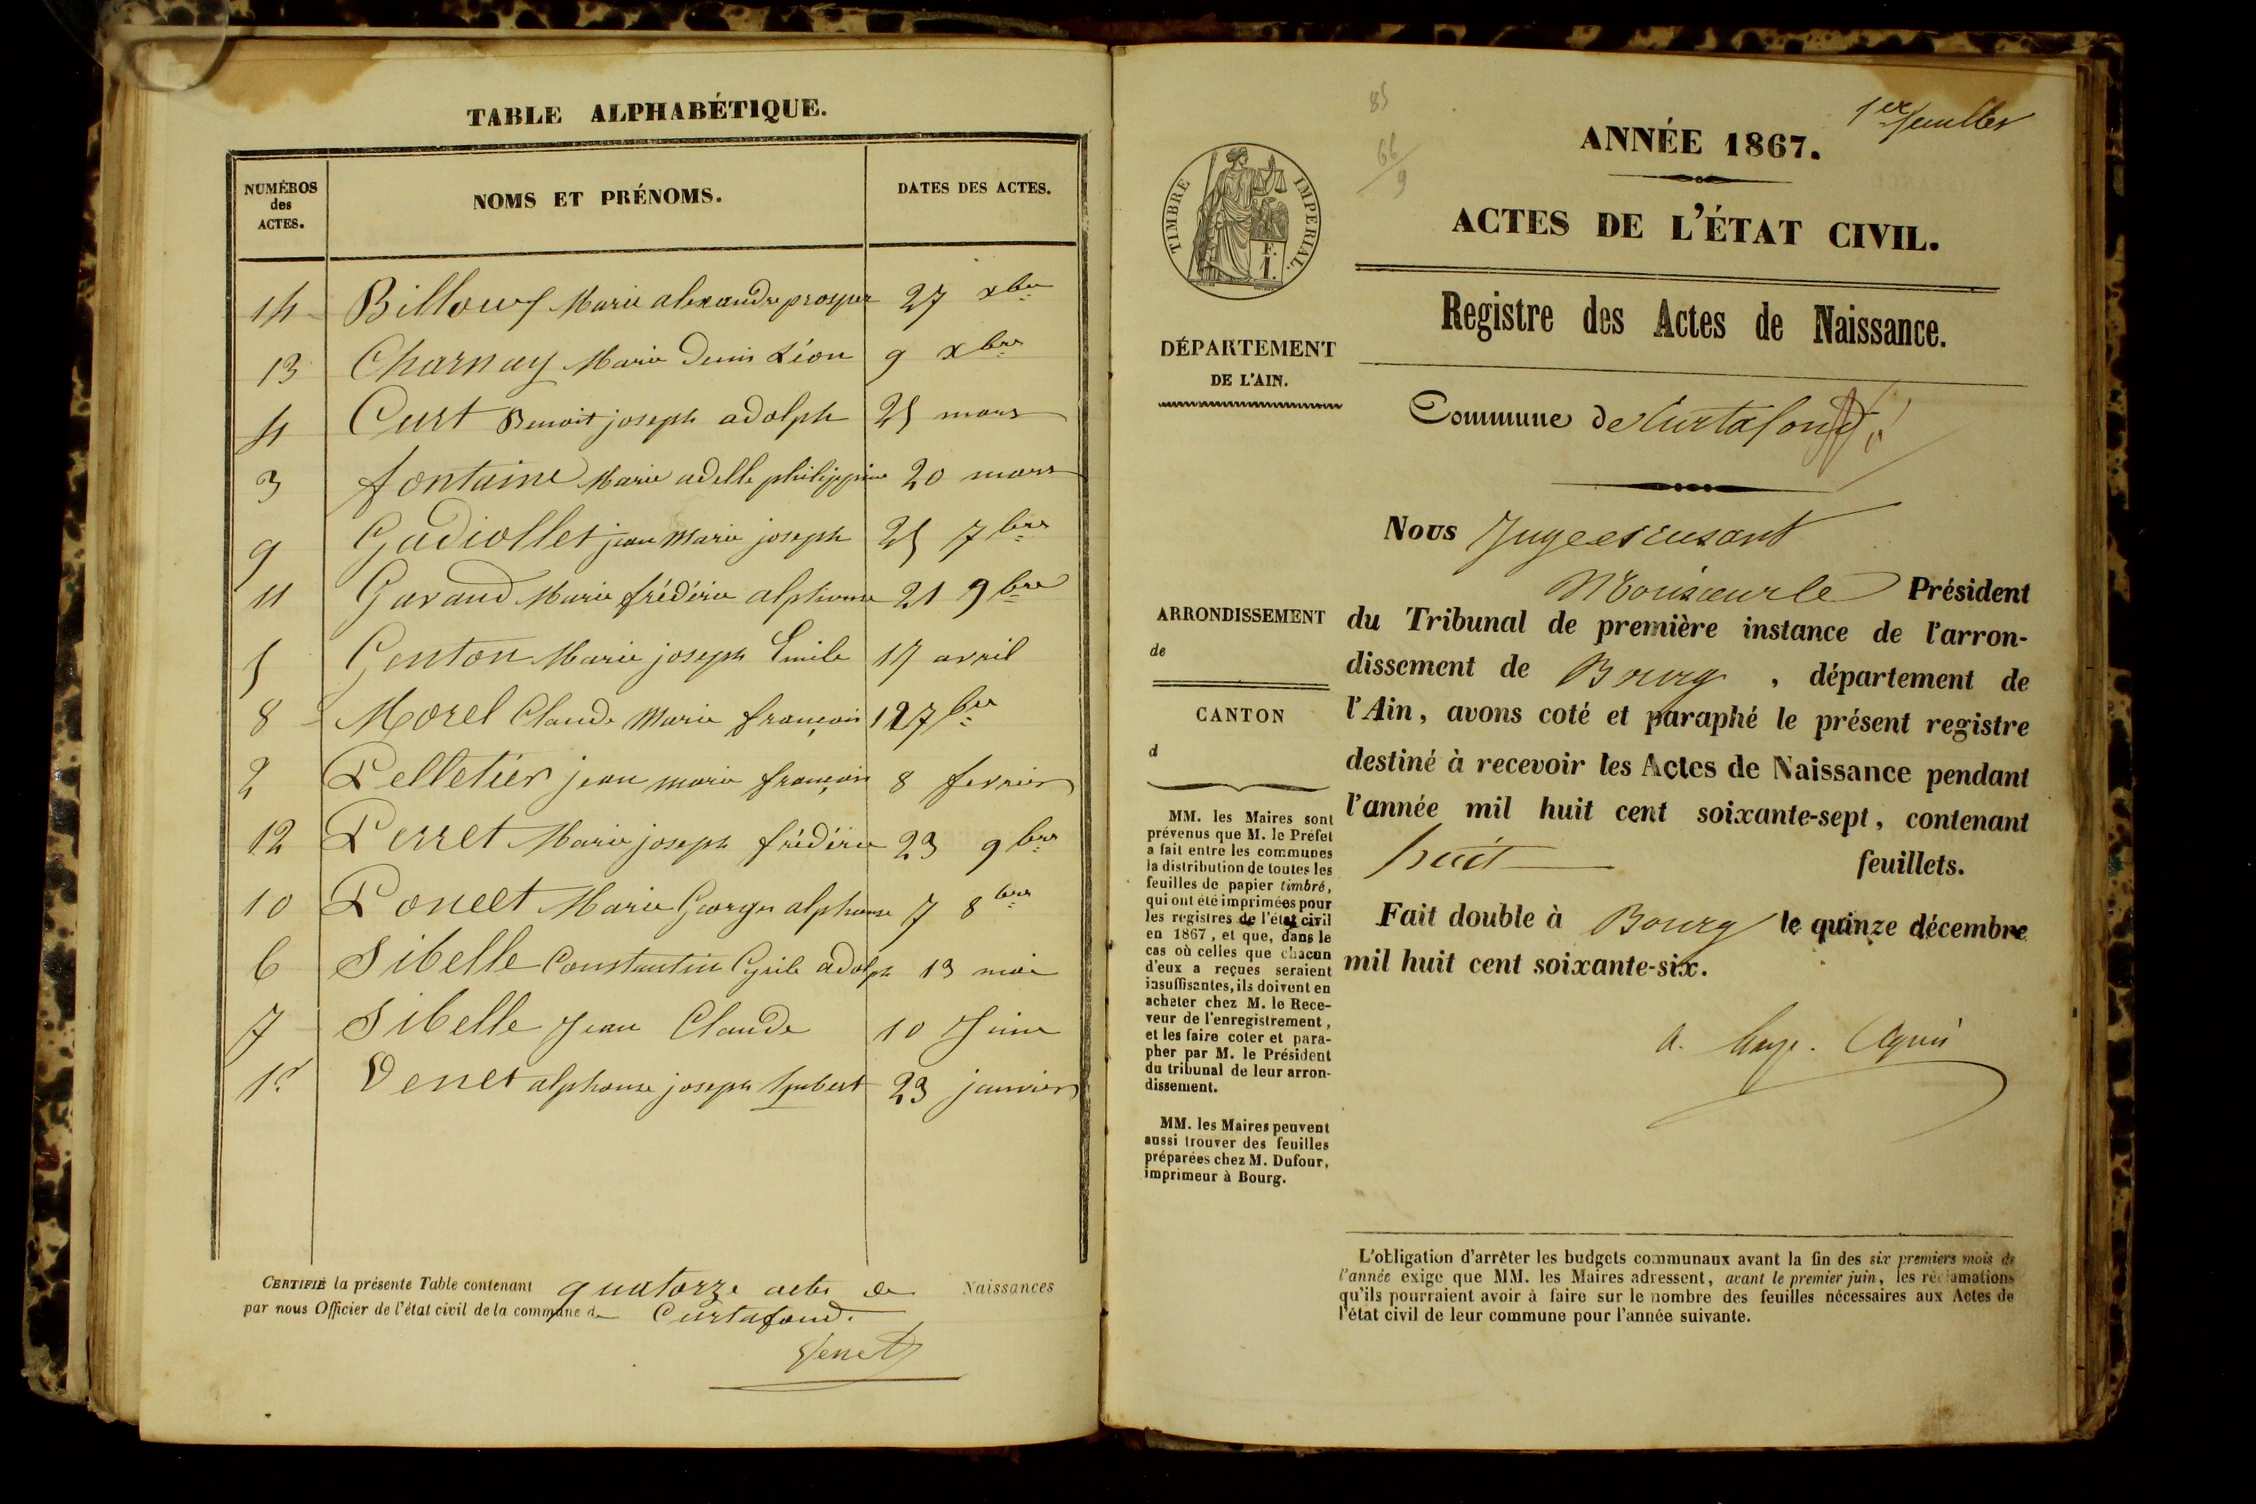 TABLE ALPHABÉTIQUE.
NUMÉROS des ACTES. NOMS ET PRÉNOMS. DATES DES ACTES.
14 Billoux Marie alexandre prosper 27 xbre
13 Charnay Marie Denis Léon 9 xbre
4 Curt Benoit joseph adolph 25 mars
3 fontaine Marie adelle philippine 20 mars
9 Gadiollet jean Marie joseph 25 7bre
11 Garaud Marie frédéric alphonse 21 9bre
5 Genton Marie joseph Emile 17 avril
8 Morel Claude Marie françois 12 7bre
2 Pelletier jean marie françois 8 fevrier
12 Perret Marie joseph frédéric 23 9bre
10 Poncet Marie Georges alphonse 7 8bre
6 Sibelle Constantin Cyrile adolph 13 mai
7 Sibelle Jean Claude 10 Juin
1er Venet alphonse joseph hubert 23 janvier
CERTIFIÉ la présente Table contenant quatorze actes de Naissances
par nous Officier de l'état civil de la commune de Curtafond.
Venet
85
66/9
1er feuillet
ANNÉE 1867.
ACTES DE L'ÉTAT CIVIL.
Registre des Actes de Naissance.
Commune de Curtafond
TIMBRE IMPERIAL.
F.
1.
DÉPARTEMENT
DE L'AIN.
ARRONDISSEMENT
de
CANTON
d
MM. les Maires sont
prévenus que M. le Préfet
a fait entre les communes
la distribution de toutes les
feuilles de papier timbré,
qui ont été imprimées pour
les registres de l'état civil
en 1867, et que, dans le
cas où celles que chacun
d'eux a reçues seraient
insuffisantes, ils doivent en
acheter chez M. le Rece-
veur de l'enregistrement,
et les faire coter et para-
pher par M. le Président
du tribunal de leur arron-
dissement.
MM. les Maires peuvent
aussi trouver des feuilles
préparées chez M. Dufour,
imprimeur à Bourg.
Nous Juge
Monsieur le Président
du Tribunal de première instance de l'arron-
dissement de Bourg, département de
l'Ain, avons coté et paraphé le présent registre
destiné à recevoir les Actes de Naissance pendant
l'année mil huit cent soixante-sept, contenant
huit feuillets.
Fait double à Bourg le quinze décembre
mil huit cent soixante-six.
L'obligation d'arrêter les budgets communaux avant la fin des six premiers mois de
l'année exige que MM. les Maires adressent, avant le premier juin, les réclamations
qu'ils pourraient avoir à faire sur le nombre des feuilles nécessaires aux Actes de
l'état civil de leur commune pour l'année suivante.